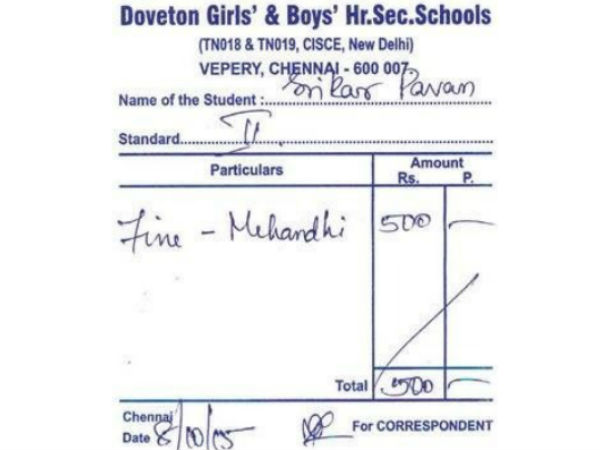 Doveton Girls' & Boys' Hr.Sec.Schools
(TN018 & TN019, CISCE, New Delhi)
VEPERY, CHENNAI - 600 007.
Name of the Student : Srikar Pavan
Standard II.
Particulars Amount Rs. P.
Fine - Mehandhi 500 —
Total 500 —
Chennai
Date 8/10/15 For CORRESPONDENT